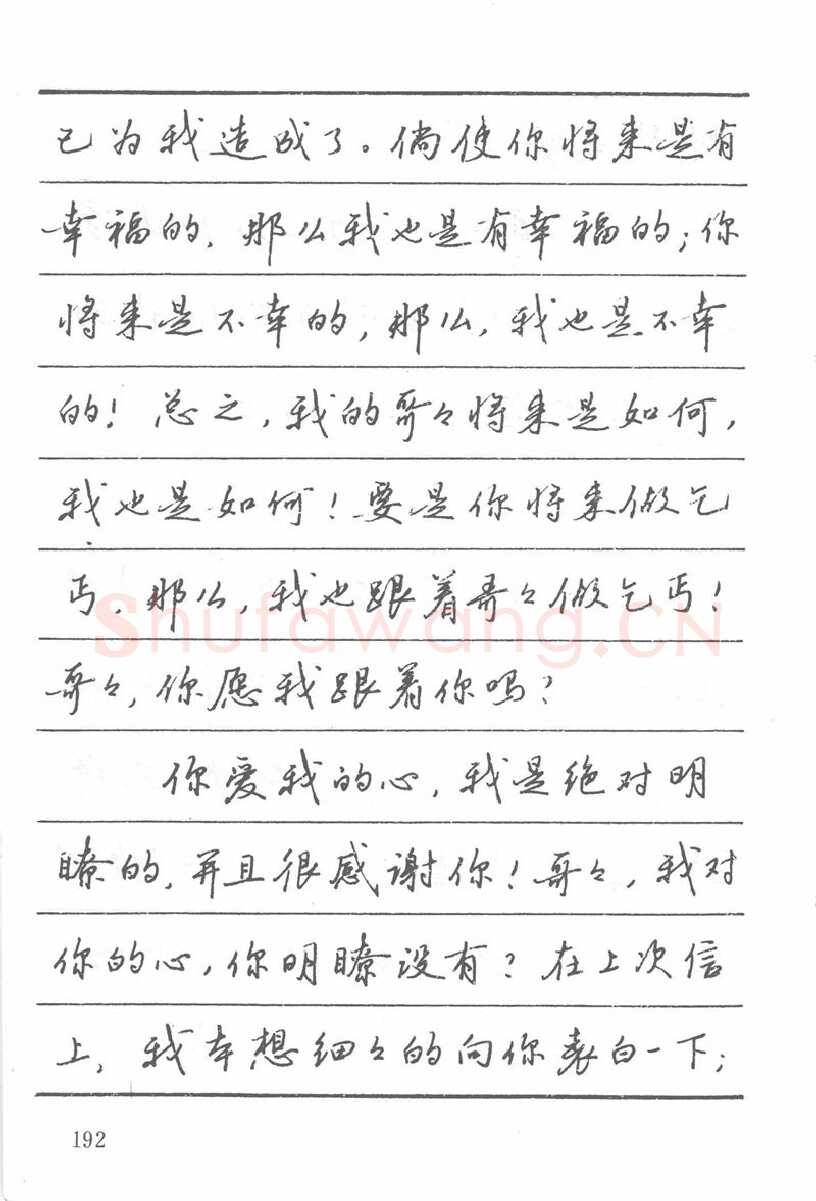 已为我造成了。倘使你将来是有
幸福的，那么我也是有幸福的；你
将来是不幸的，那么，我也是不幸
的！总之，我的哥々将来是如何，
我也是如何！要是你将来做乞
丐，那么，我也跟着哥々做乞丐！
Shufawang.CN
哥々，你愿我跟着你吗？
你爱我的心，我是绝对明
瞭的，并且很感谢你！哥々，我对
你的心，你明瞭没有？在上次信
上，我本想细々的向你表白一下；
192